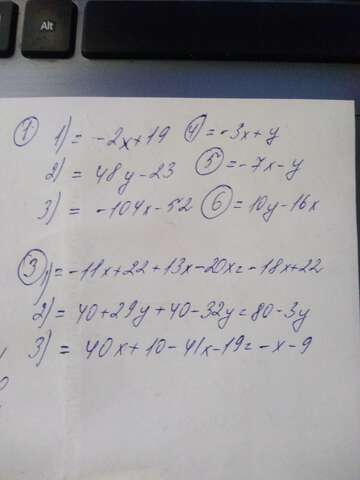 Alt
① 1) = -2x+19 ④ = -3x+y
2) = 48y-23 ⑤ = -7x-y
3) = -104x-52 ⑥ = 10y-16x
③ 1) = -11x+22+13x-20x = -18x+22
2) = 40+29y+40-32y = 80-3y
3) = 40x+10-41x-19 = -x-9